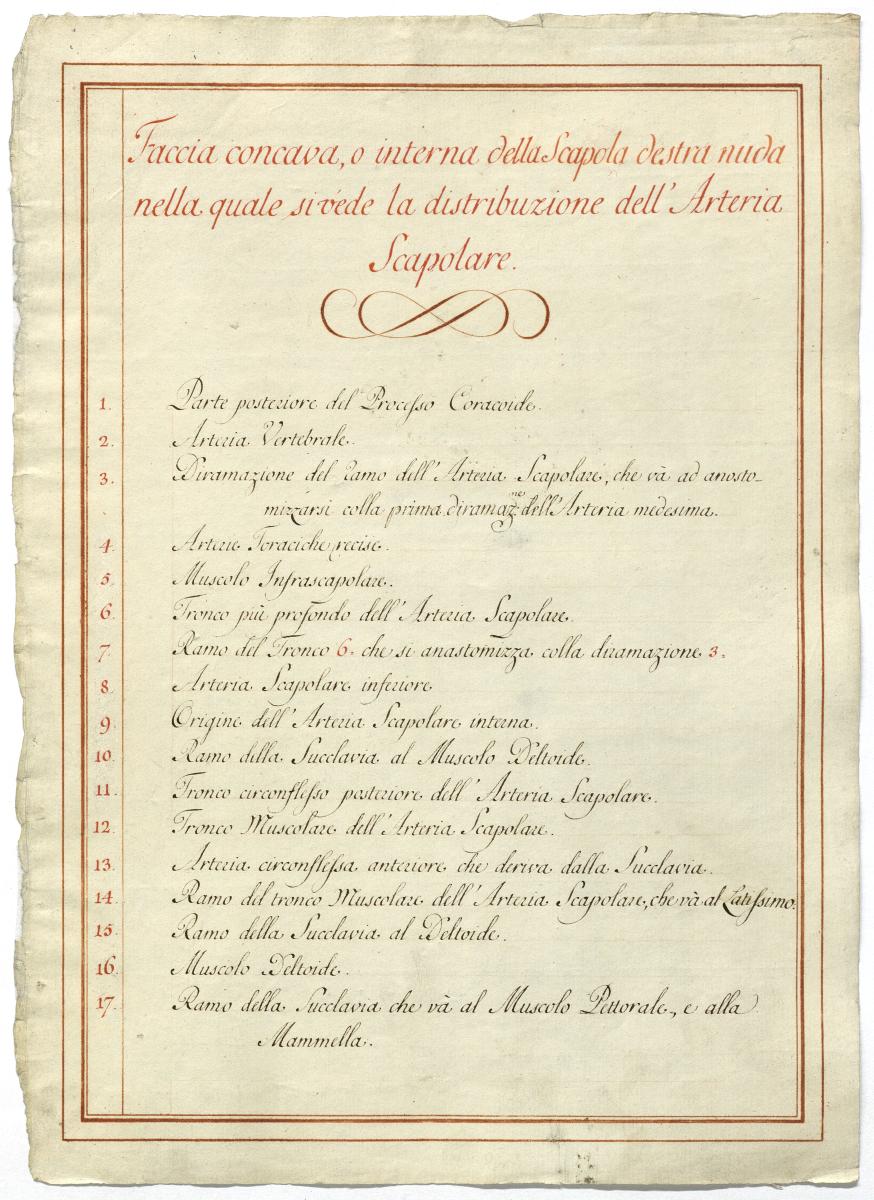 Faccia concava, o interna della Scapola destra nuda
nella quale si vede la distribuzione dell'Arteria
Scapolare.
1. Parte posteriore del Processo Coracoide.
2. Arteria Vertebrale.
3. Diramazione del Ramo dell'Arteria Scapolare, che và ad anosto-
mizzarsi colla prima diramaz.ne dell'Arteria medesima.
4. Arterie Toraciche recise.
5. Muscolo Infrascapolare.
6. Tronco più profondo dell'Arteria Scapolare.
7. Ramo del Tronco 6. che si anastomizza colla diramazione 3.
8. Arteria Scapolare inferiore
9. Origine dell'Arteria Scapolare interna.
10. Ramo della Succlavia al Muscolo Deltoide.
11. Tronco circonflesso posteriore dell'Arteria Scapolare.
12. Tronco Muscolare dell'Arteria Scapolare.
13. Arteria circonflessa anteriore che deriva dalla Succlavia.
14. Ramo del tronco Muscolare dell'Arteria Scapolare, che và al Latissimo.
15. Ramo della Succlavia al Deltoide.
16. Muscolo Deltoide.
17. Ramo della Succlavia che và al Muscolo Pettorale, e alla
Mammella.